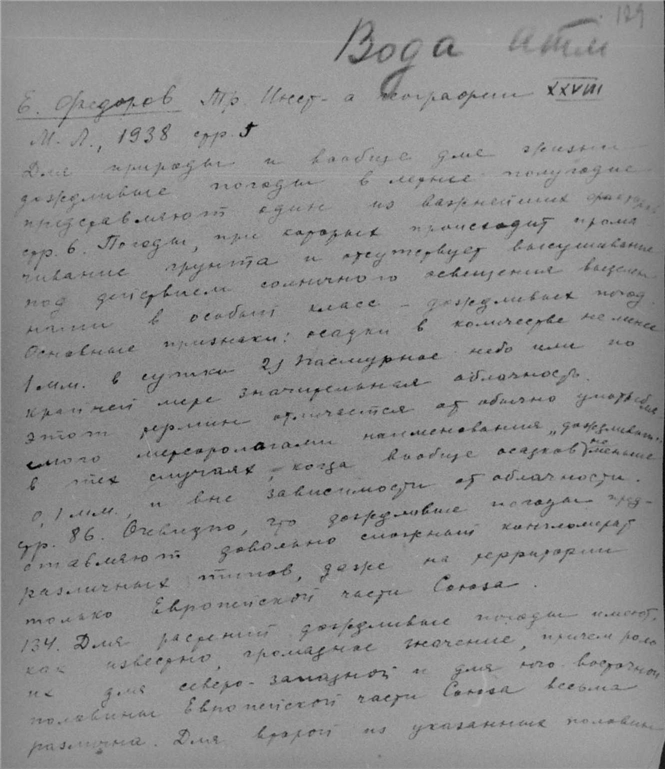 129
Вода атм
Е. Федоров Тр. Инст-а географии XXVIII
М. Л., 1938 стр. 5
Для природы и вообще для жизни
дождливые погоды в летнее полугодие
представляют один из важнейших факторов
стр. 6. Погоды, при которых происходит прома
чивание грунта и отсутствует высушивание
под действием солнечного освещения выделены
нами в особый класс – дождливых погод.
Основные признаки: осадки в количестве не менее
1 мм. в сутки 2) Пасмурное небо или по
крайней мере значительная облачность.
Этот термин отличается от обычно употребляе
мого метеорологами наименования „дождливый"
в тех случаях, когда вообще осадков не меньше
0,1 мм., и вне зависимости от облачности.
стр. 86. Очевидно, что дождливые погоды пред-
ставляют довольно сложный конгломерат
различных типов, даже на территории
только Европейской части Союза.
134. Для растений дождливые погоды имеют,
как известно, громадное значение, причем роль
их для северо-западной и для юго-восточной
половины Европейской части Союза весьма
различна. Для второй из указанных половин